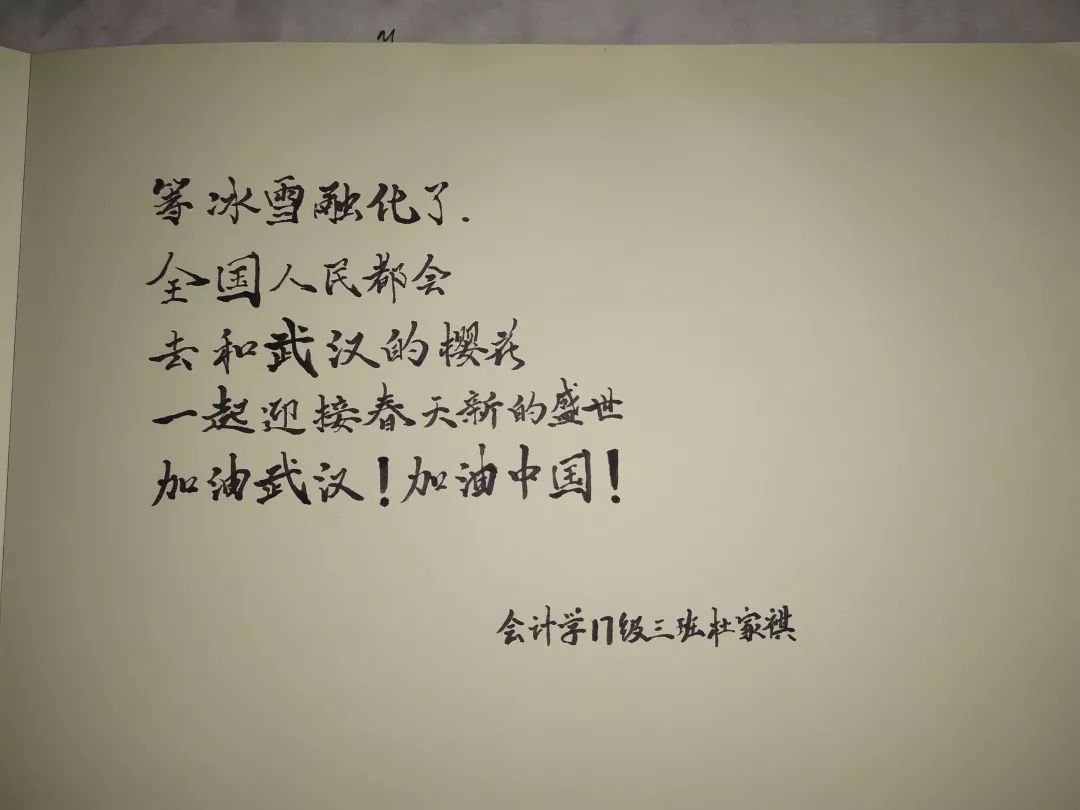 等冰雪融化了.
全国人民都会
去和武汉的樱花
一起迎接春天新的盛世
加油武汉!加油中国!
会计学17级三班杜家祺